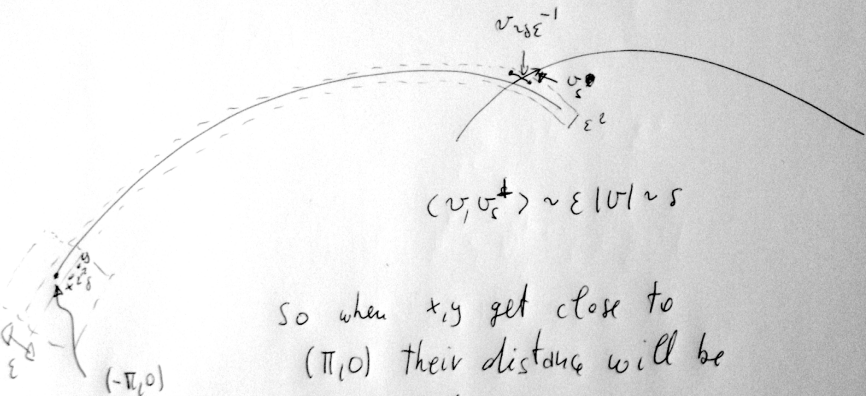 v ~ δε⁻¹
v_s
ε²
⟨v, v_s^⊥⟩ ~ ε|v| ~ δ
y
x
δ
ε
(-π,0)
so when x,y get close to
(π,0) their distance will be